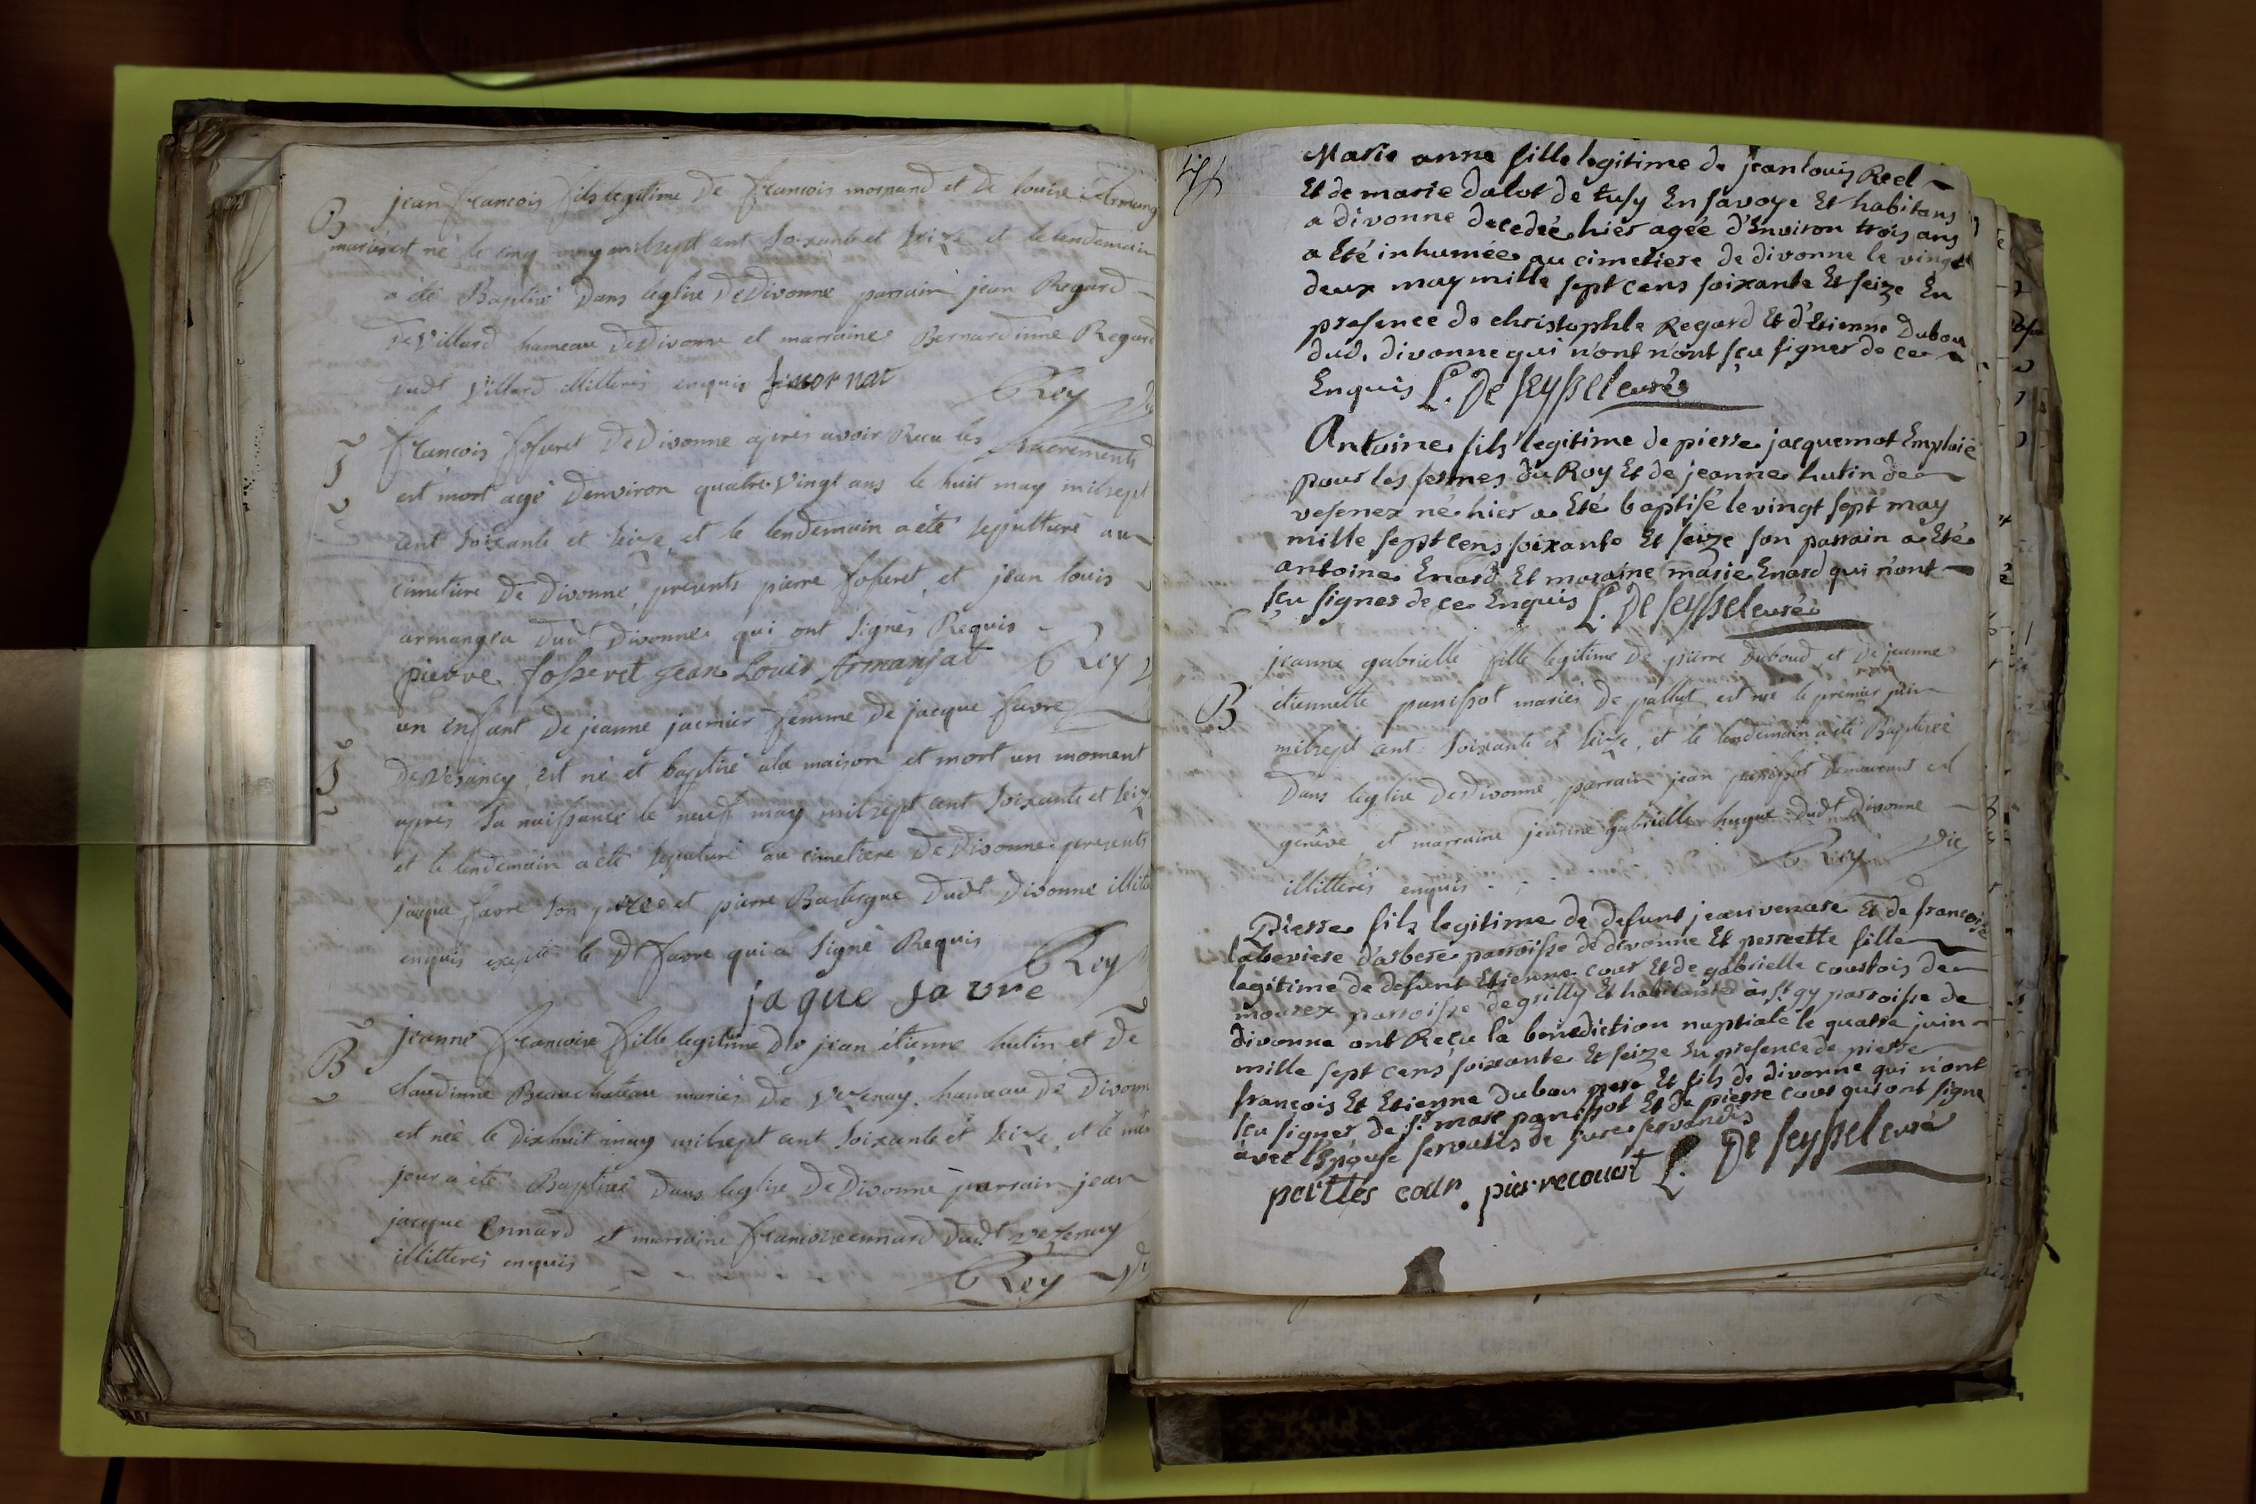 B
jean françois fils legitime De françois mornand et De louise
mariés est né le cinq may milsept cent soixante et seize et le lendemain
a été Baptisé Dans leglise De Divonne parrain jean Regard
De Villard hameau De Divonne et marraine Bernardinne Regard
dudt Villard illitterés enquis
Rey
S
françois fosseret De Divonne après avoir Recu les sacrements
est mort agé Denviron quatre Vingt ans le huit may milsept
cent soixante et seize, et le lendemain a été sepulturé au
cimetiere De Divonne, presents pierre fosseret, et jean louis
armangea Dudt Divonne qui ont signés Requis
pierre fosseret jean Louis Armanjat Rey
S
un enfant De jeanne jacmier femme De jacque favre
De Vesancy, est né et baptisé ala maison et mort un moment
après sa naissance le neuf may milsept cent soixante et seize
et le lendemain a été sepulturé au cimetiere De Divonne presents
jacque favre son père et pierre Bastergue Dudt Divonne
enquis excepté le Dt favre qui a signé Requis
Rey
jaque favre
B
jeanne francoise fille legitime De jean étienne hutin et De
claudinne Beauchateau mariés De Vezenay, hameau De Divonne
est née le Dixhuit may milsept cent soixante et seize, et le
jour a été Baptisée Dans leglise De Divonne parrain jean
jacque Ennard et marraine francoise ennard Dudt vezenay
illitterés enquis
Rey
Marie anne fille legitime de jean louis Reel
Et de marie dalot de tusy En savoye Et habitans
a divonne decedée hier agée d'Environ trois ans
a Eté inhumée au cimetiere de divonne le vingt
deux may mille sept cens soixante Et seize En
presence de christophle Regard Et d'Etienne Dubou
dud. divonne qui n'ont n'ont sçu signer de ce
Enquis L. De seyssel curé
Antoine fils legitime de pierre jacquemot Emploié
pour les fermes du Roy Et de jeanne hutin de
vesenex né hier a Eté baptisé le vingt sept may
mille sept cens soixante Et seize son parrain a Eté
antoine Enard Et maraine marie Enard qui n'ont
sçu signer de ce Enquis L. De seyssel curé
B
jeanne gabrielle fille legitime De pierre Duboud et De jeanne
étiennette panissot mariés De est née le premier juin
milsept cent soixante et seize, et le lendemain a été Baptisée
Dans leglise De Divonne, parrain jean panissot Demeurant
genêve, et marraine jeanne gabrielle hugue Dudt Divonne
illitterés enquis Rey Vic
Pierre fils legitime de defunt jean venare Et de francoise
labeviere d'arbere parroisse de divonne Et perrette fille
legitime de defunt Etienne cour Et de gabrielle courtois de
mourex parroisse de grilly Et habitante à st gy parroisse de
divonne ont Reçu la benediction nuptiale le quatre juin
mille sept cens soixante Et seize En presence de pierre
françois Et Etienne dubou pere Et fils de divonne qui n'ont
sçu signer de st marc panissot Et de pierre cour qui ont signé
avec l'Epouse servatis de jure servandis
cour. pierre L. De seyssel curé